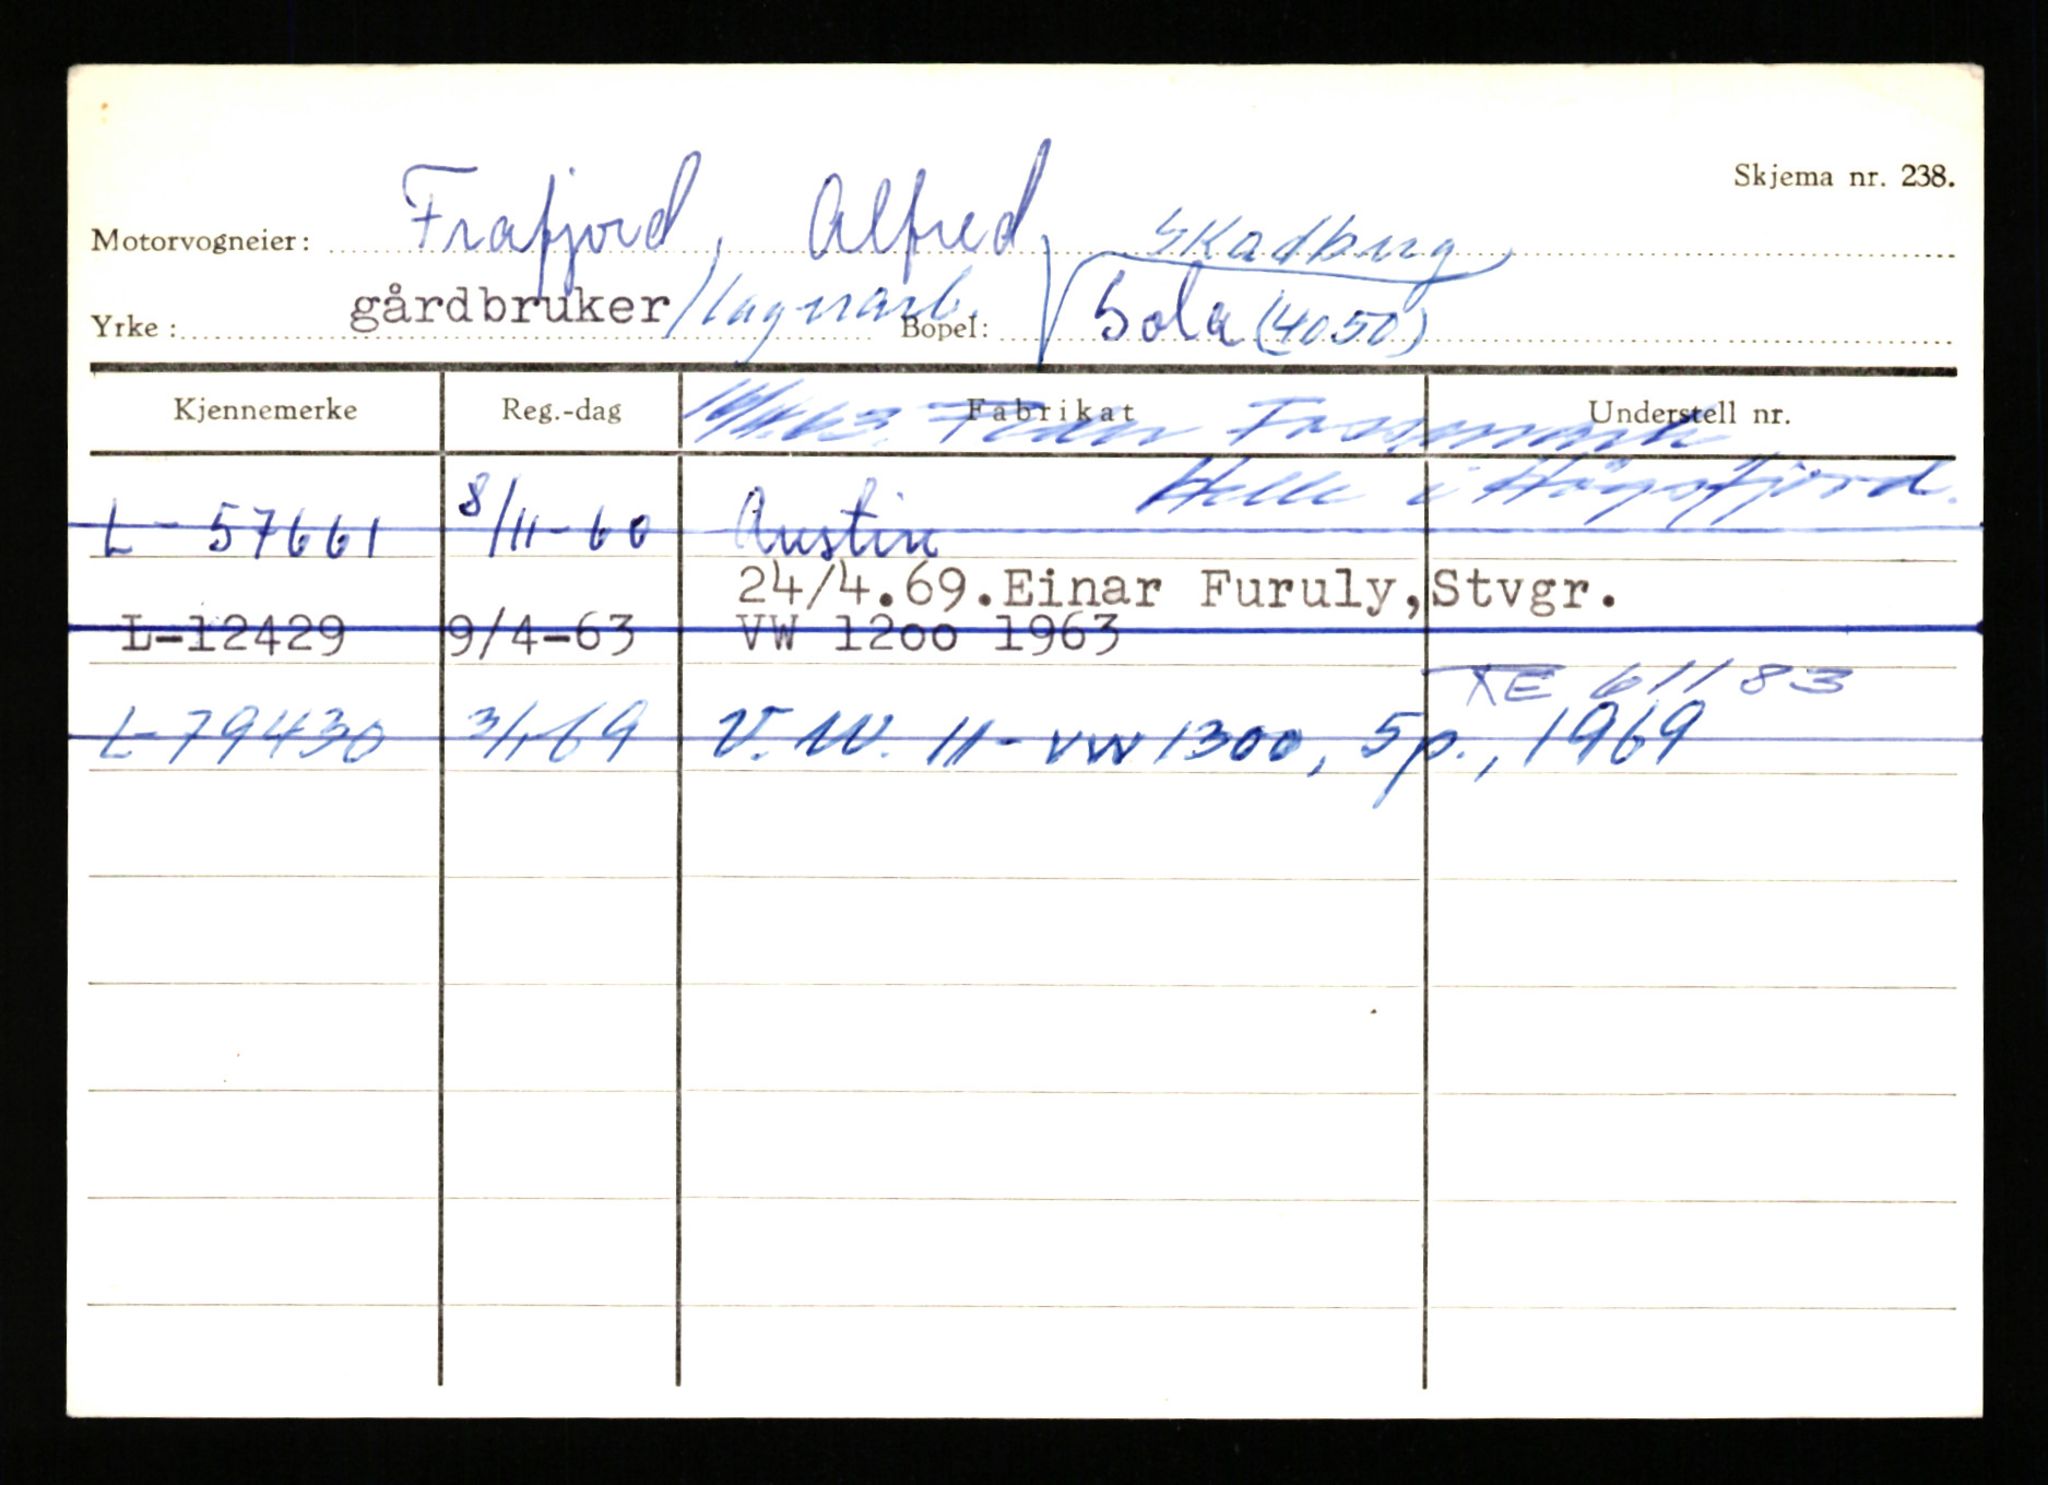 Skjema nr. 238.
Motorvogneier: Frafjord, Alfred, Skadberg
Yrke: gårdbruker/lagerarb. Bopel: Sola (4050)
Kjennemerke Reg.-dag Fabrikat Understell nr.
Helle i Høgsfjord.
L - 57661 8/11-60 Austin
24/4.69.Einar Furuly, Stvgr.
L-12429 9/4-63 VW 12oo 1963
KE 61183
L-79430 V.W. 11-VW 1300, 5p., 1969